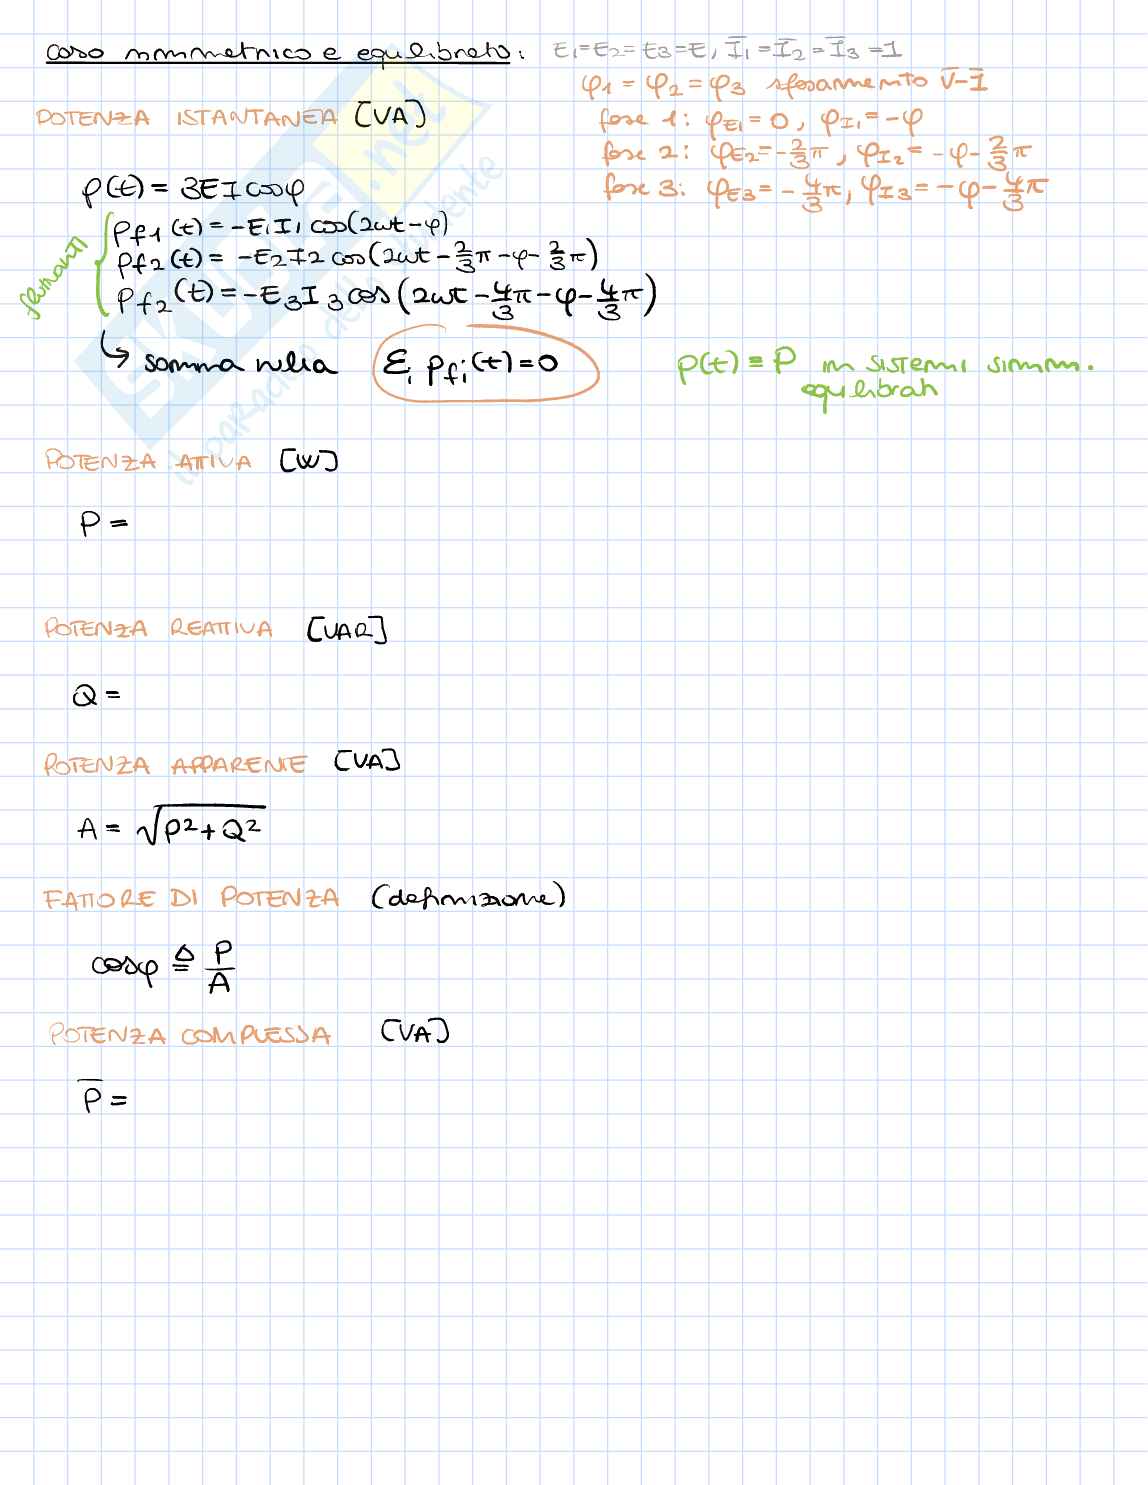 caso simmetrico e equilibrato: E1=E2=E3=E, I̅1=I̅2=I̅3=1
φ1=φ2=φ3 sfasamento V̅-I̅
POTENZA ISTANTANEA [VA]
fase 1: φE1=0, φI1=-φ
fase 2: φE2=-2/3π, φI2=-φ-2/3π
fase 3: φE3=-4/3π, φI3=-φ-4/3π
p(t)=3EIcosφ
Pf1(t)=-E1I1 cos(2ωt-φ)
Pf2(t)=-E2I2 cos(2ωt-2/3π-φ-2/3π)
Pf2(t)=-E3I3cos(2ωt-4/3π-φ-4/3π)
↳ somma nulla Σi pfi(t)=0
p(t)≡P in sistemi simm.
equilibrati
POTENZA ATTIVA [W]
P=
POTENZA REATTIVA [VAR]
Q=
POTENZA APPARENTE [VA]
A=√P²+Q²
FATTORE DI POTENZA (definizione)
cosφ ≜ P/A
POTENZA COMPLESSA [VA]
P̅=
SKUOLA.net